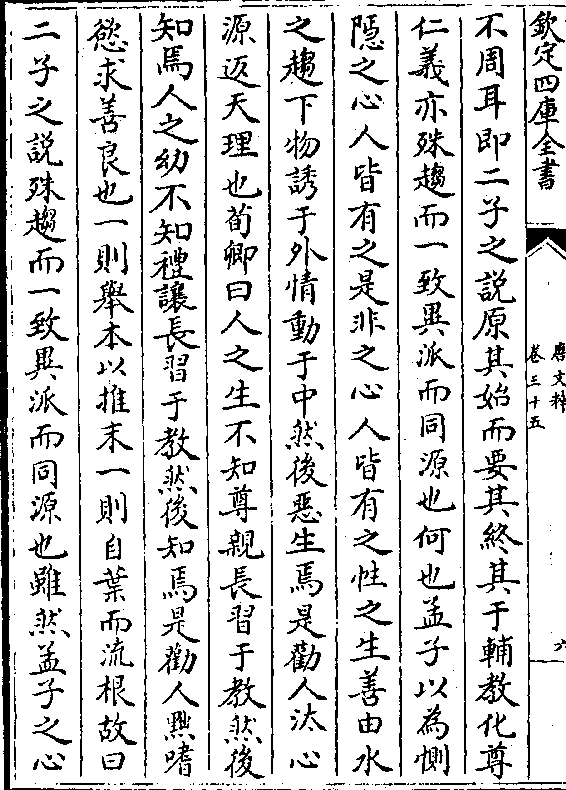 欽定四庫全書
唐文粹
卷三十五
六
不周耳即二子之說原其始而要其終其于輔教化尊
仁義亦殊趨而一致異派而同源也何也孟子以為惻
隱之心人皆有之是非之心人皆有之性之生善由水
之趨下物誘于外情動于中然後惡生焉是勸人汰心
源返天理也荀卿曰人之生不知尊親長習于教然後
知焉人之幼不知禮讓長習于教然後知焉是勸人黜嗜
慾求善良也一則舉本以推末一則自葉而流根故曰
二子之說殊趨而一致異派而同源也雖然孟子之心